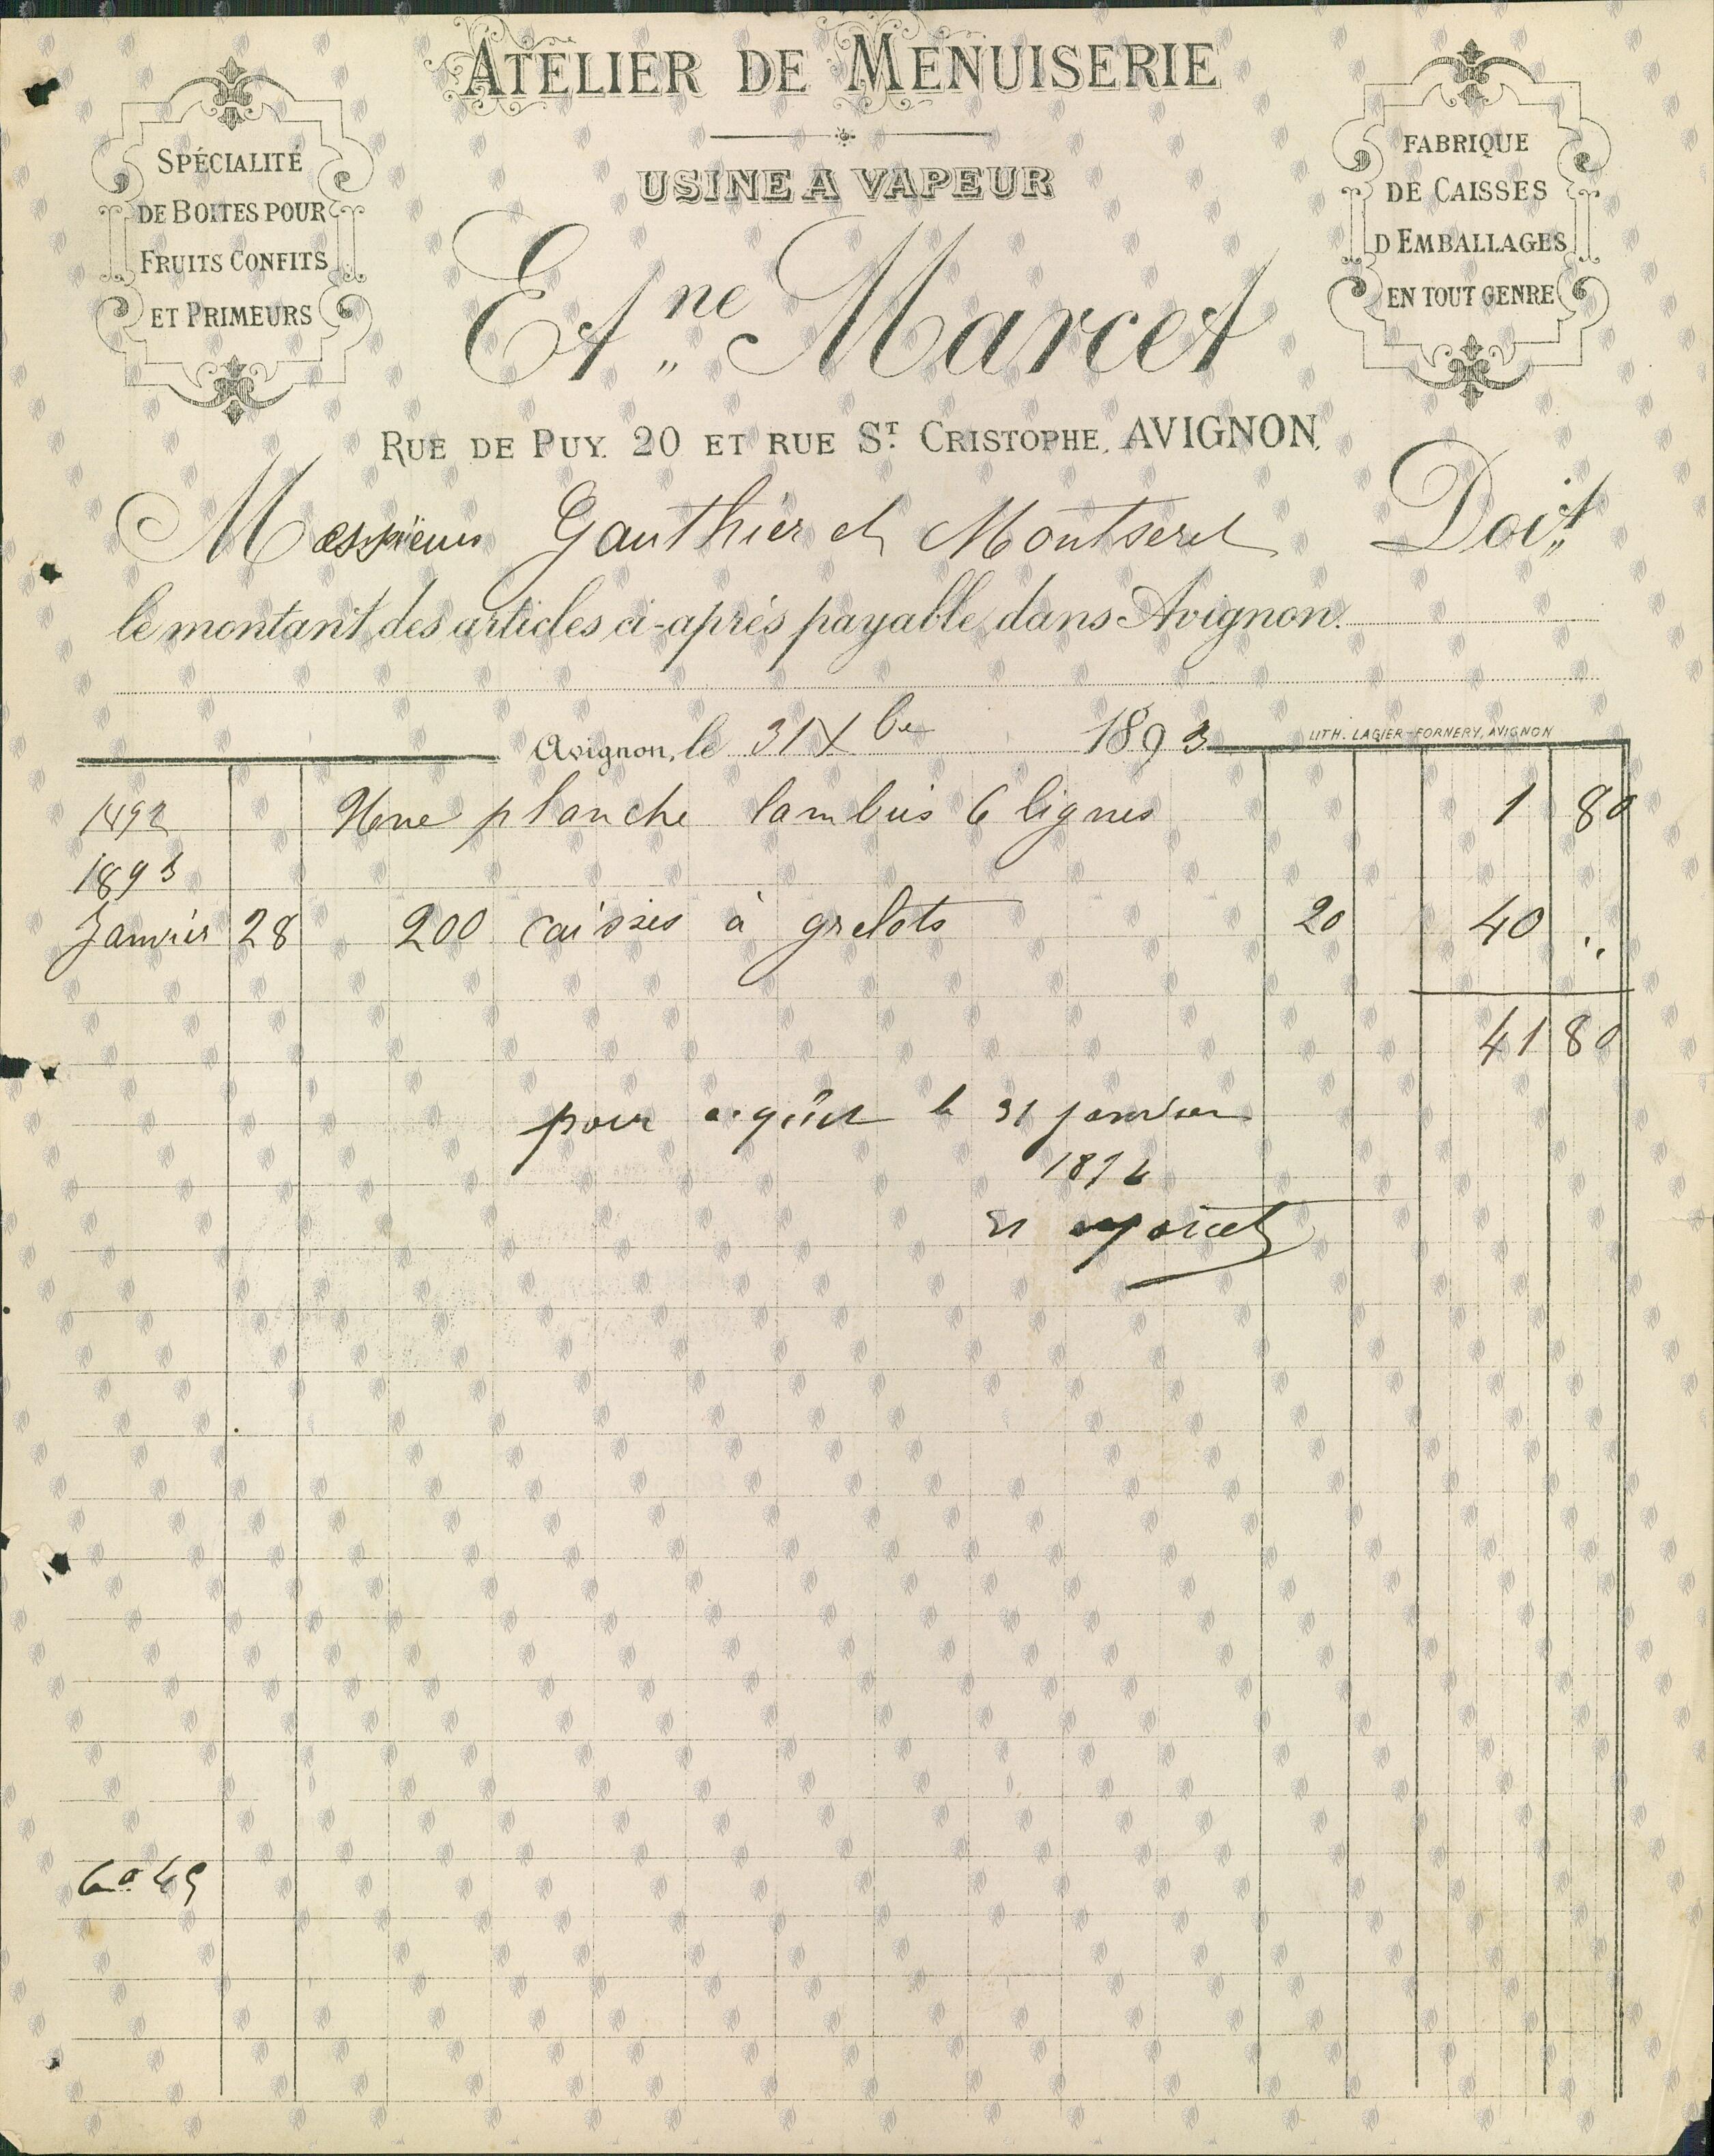 ATELIER DE MENUISERIE
USINE A VAPEUR
SPÉCIALITÉ
DE BOITES POUR
FRUITS CONFITS
ET PRIMEURS
FABRIQUE
DE CAISSES
D'EMBALLAGES
EN TOUT GENRE
Etne Marcet
RUE DE PUY. 20 ET RUE ST. CRISTOPHE, AVIGNON.
Messieurs Gauthier et Montseret Doit
le montant des articles ci-après payable dans Avignon.
Avignon, le 31 Xbre 1893
LITH. LAGIER-FORNERY, AVIGNON
1892 Une planche lambris 6 lignes 1 80
1893
Janvier 28 200 caisses à grelots 20 40 "
41 80
pour acquit le 31 janvier
1894
Et Marcet